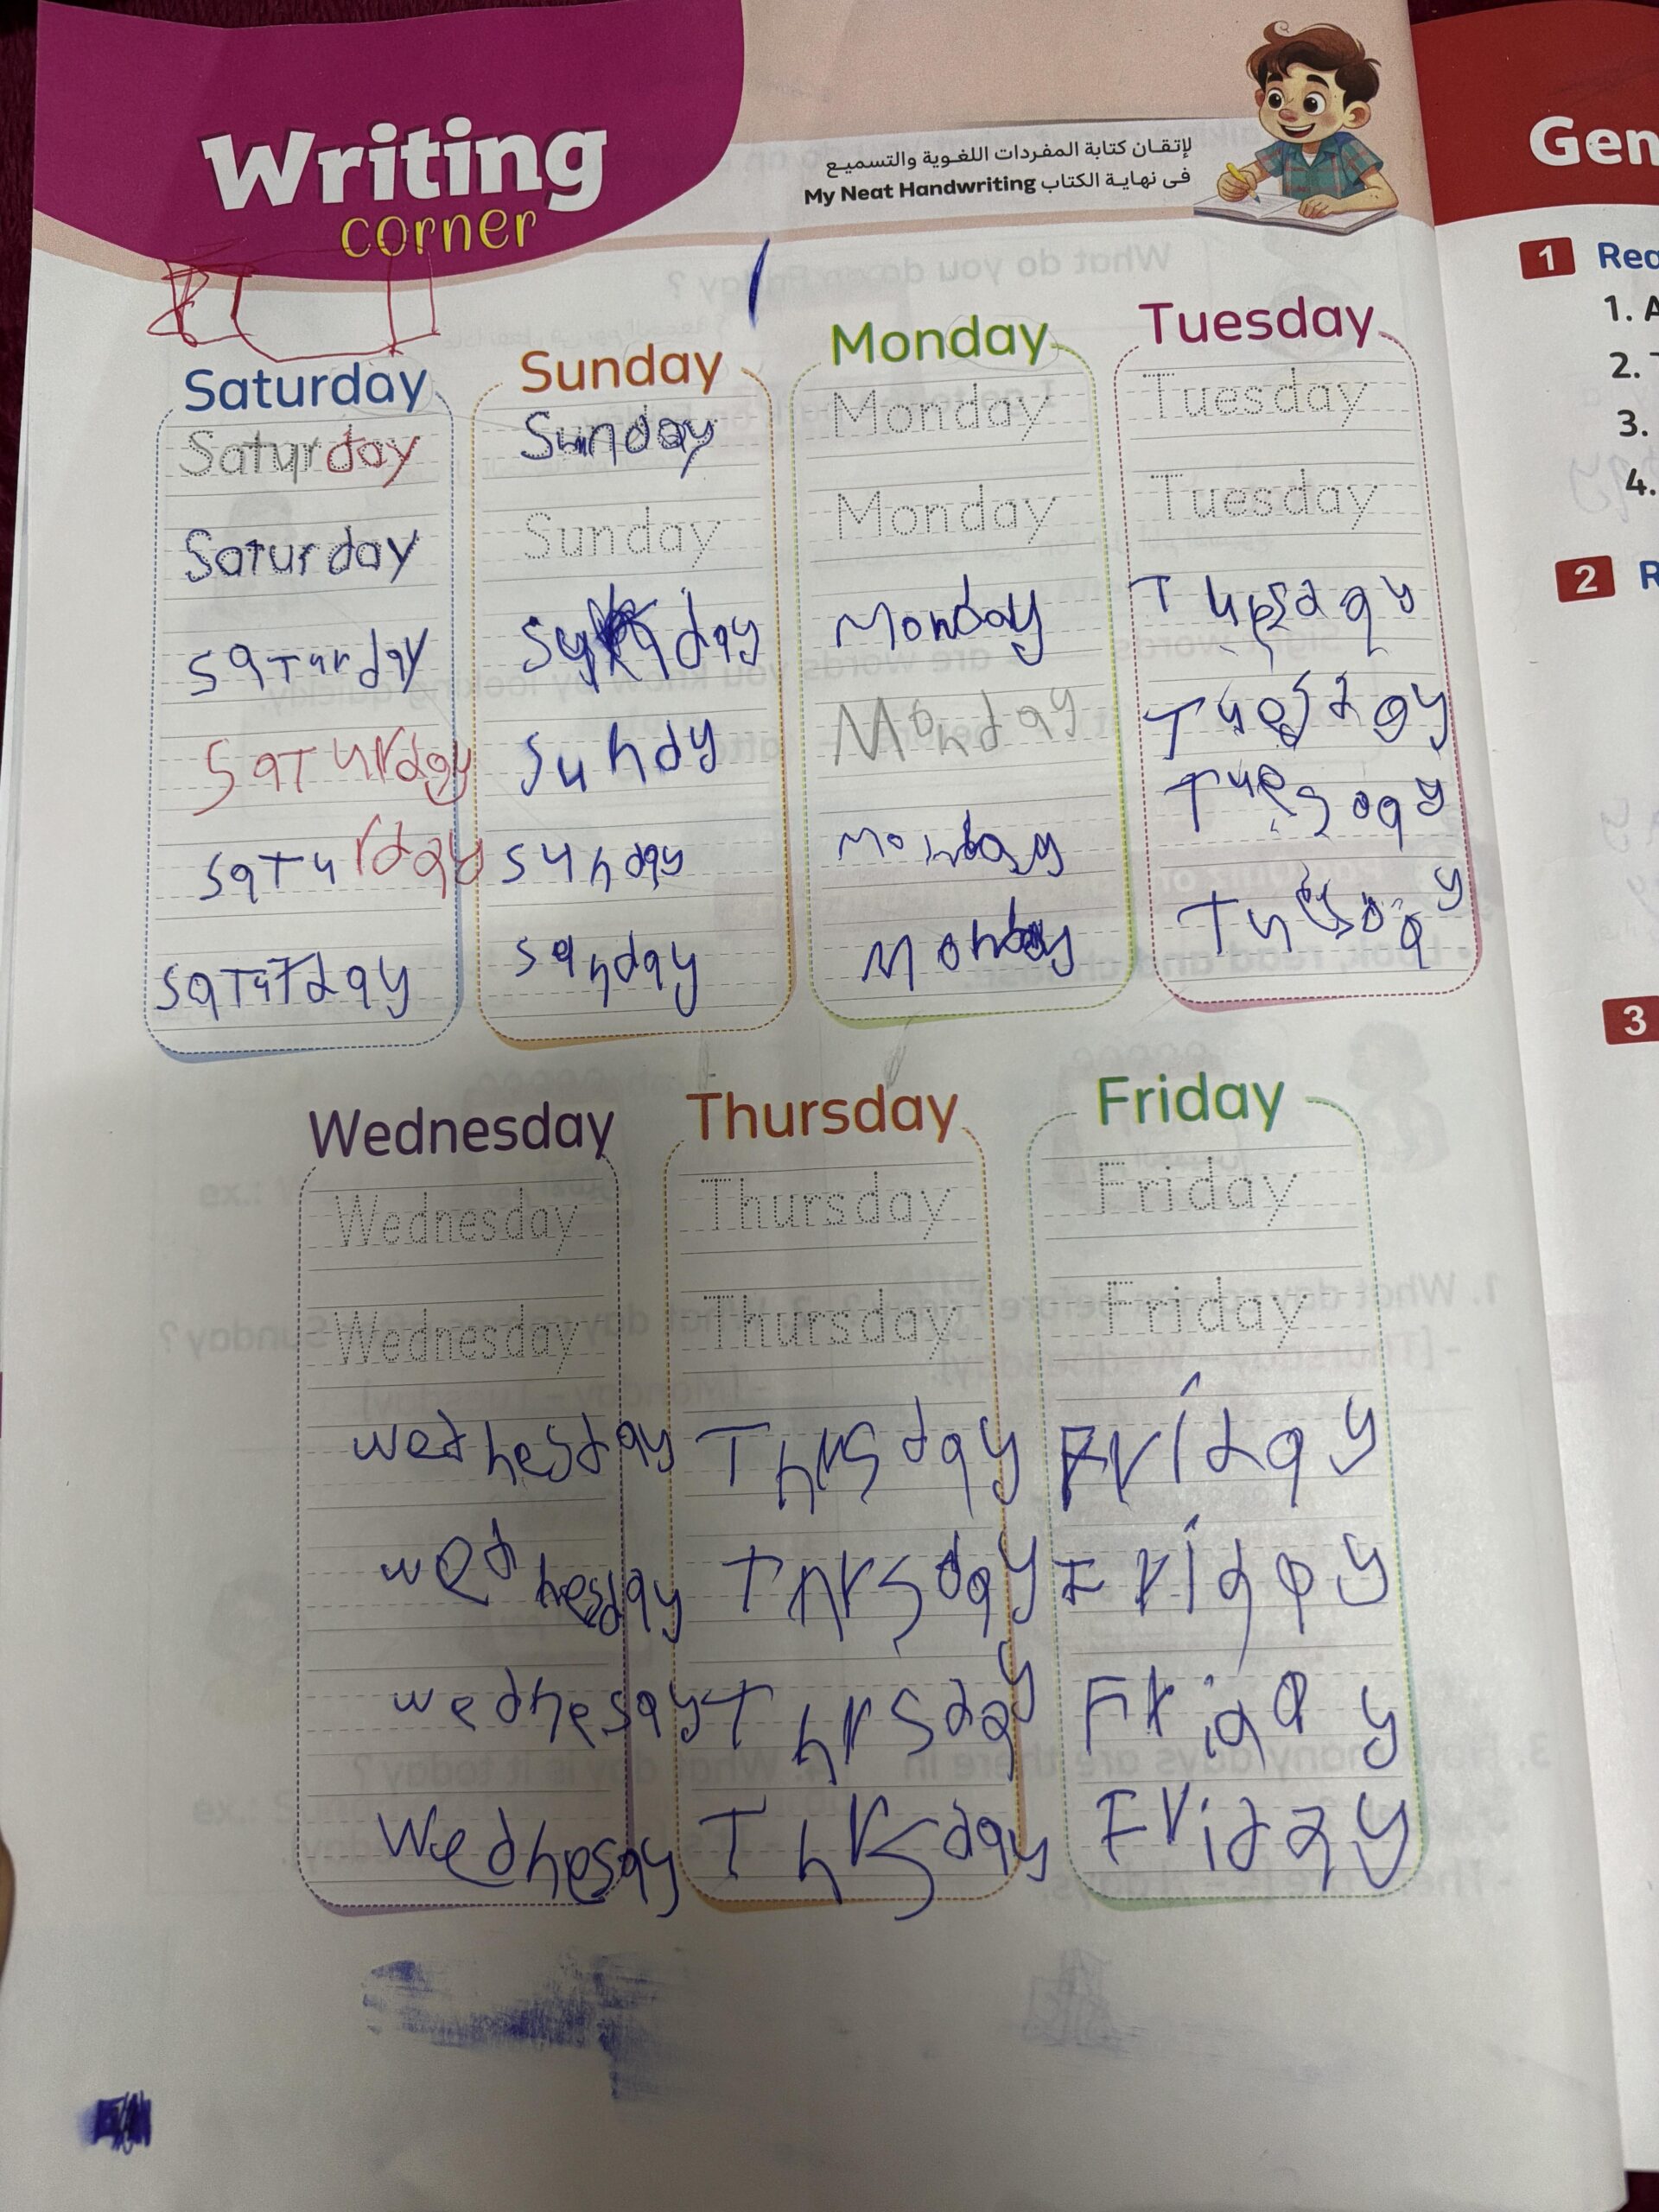 Writing
corner
لإتقـان كتابة المفـردات اللغـوية والتسميـع
فى نهايـة الكتاب My Neat Handwriting
Saturday
Saturday
Saturday
saturday
saturday
saturday
saturday
Sunday
Sunday
Sunday
day
sundy
sunday
sanday
Monday
Monday
Monday
Monday
Monday
Monday
Monday
Tuesday
Tuesday
Tuesday
Tuesday
Tuesday
Wednesday
Wednesday
Wednesday
wednesday
wednesday
wednesay
Wednesay
Thursday
Thursday
Thursday
Thrsday
Thrsday
Thrsday
Thrsday
Friday
Friday
Friday
Friday
Friday
Friday
Friday
Gen
1
1.
2.
3.
4.
2
R
3